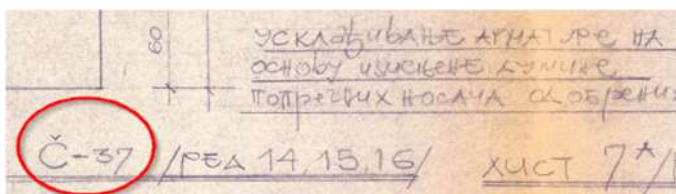 60
УСКЛАЂИВАЊЕ АРМАТУРЕ НА
ОСНОВУ ИЗИСКЕНЕ ДУЖИНЕ
ПОПРЕЧНИХ НОСАЧА ОДОБРЕНИХ
Č-37 /РЕД 14,15,16/ ХИСТ 7*/